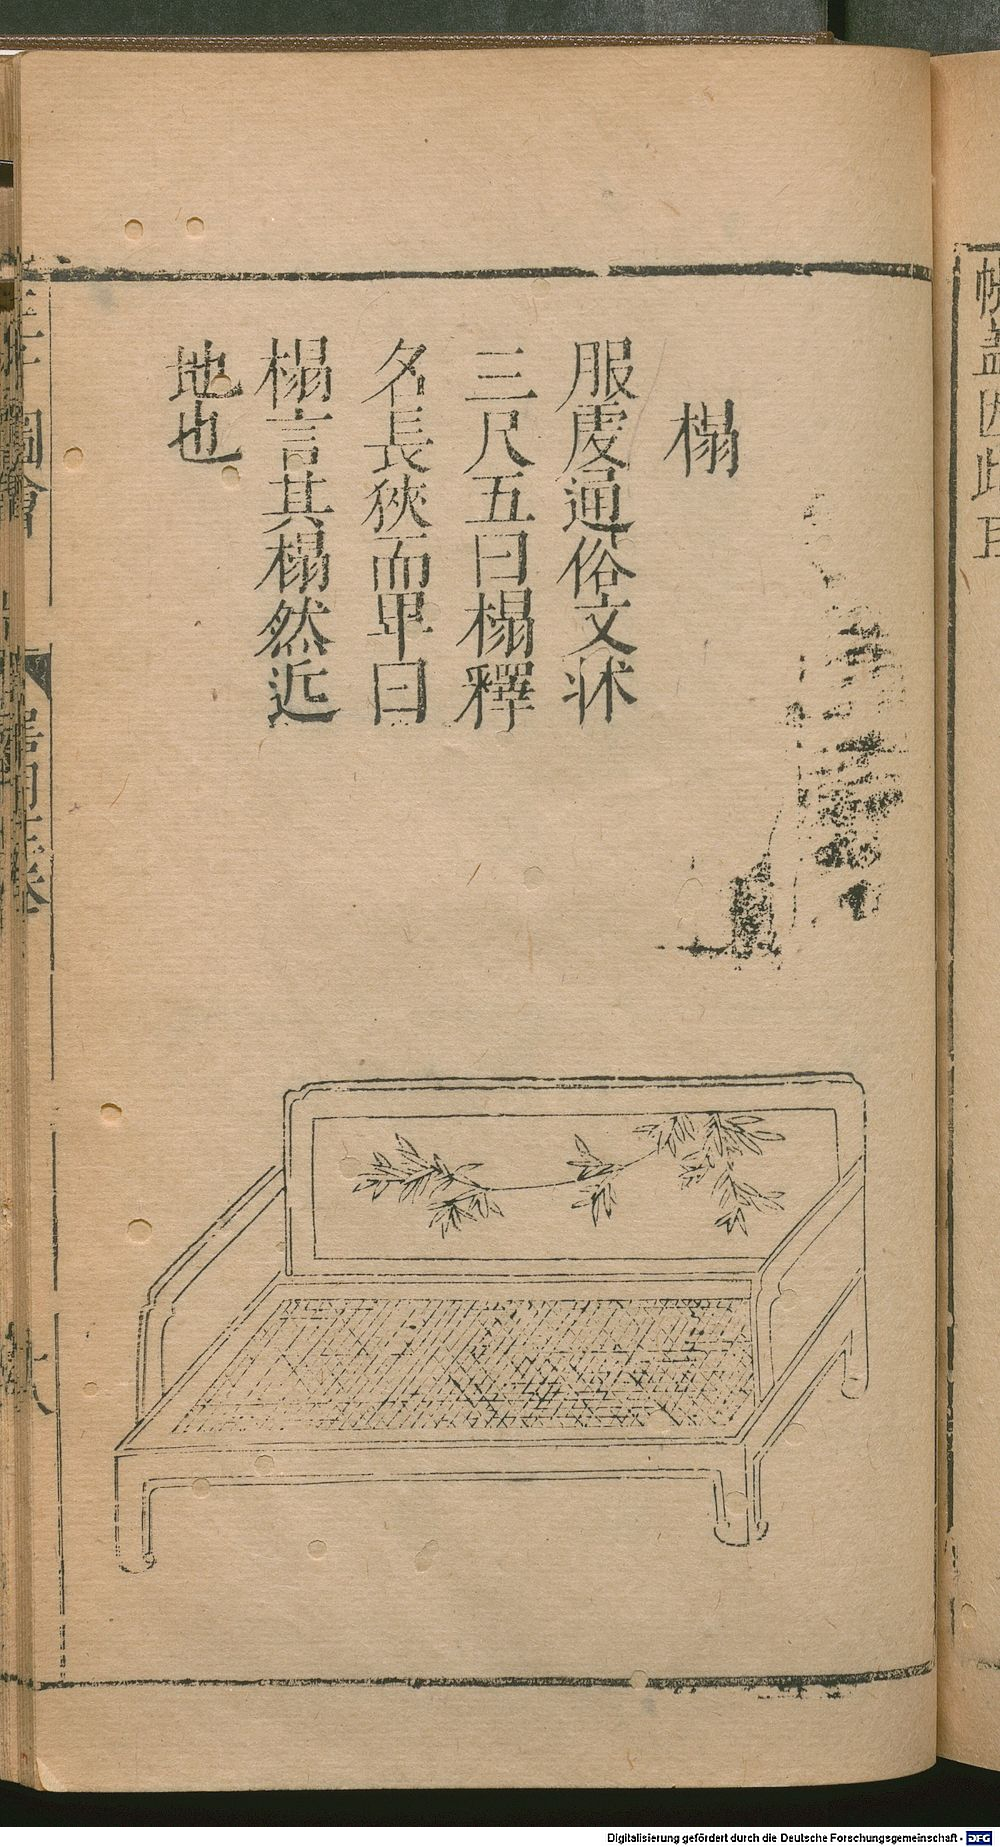 榻
服虔通俗文牀
三尺五曰榻釋
名長狹而卑曰
榻言其榻然近
地也
圖會
帳蓋因此
Digitalisierung gefördert durch die Deutsche Forschungsgemeinschaft - DFG